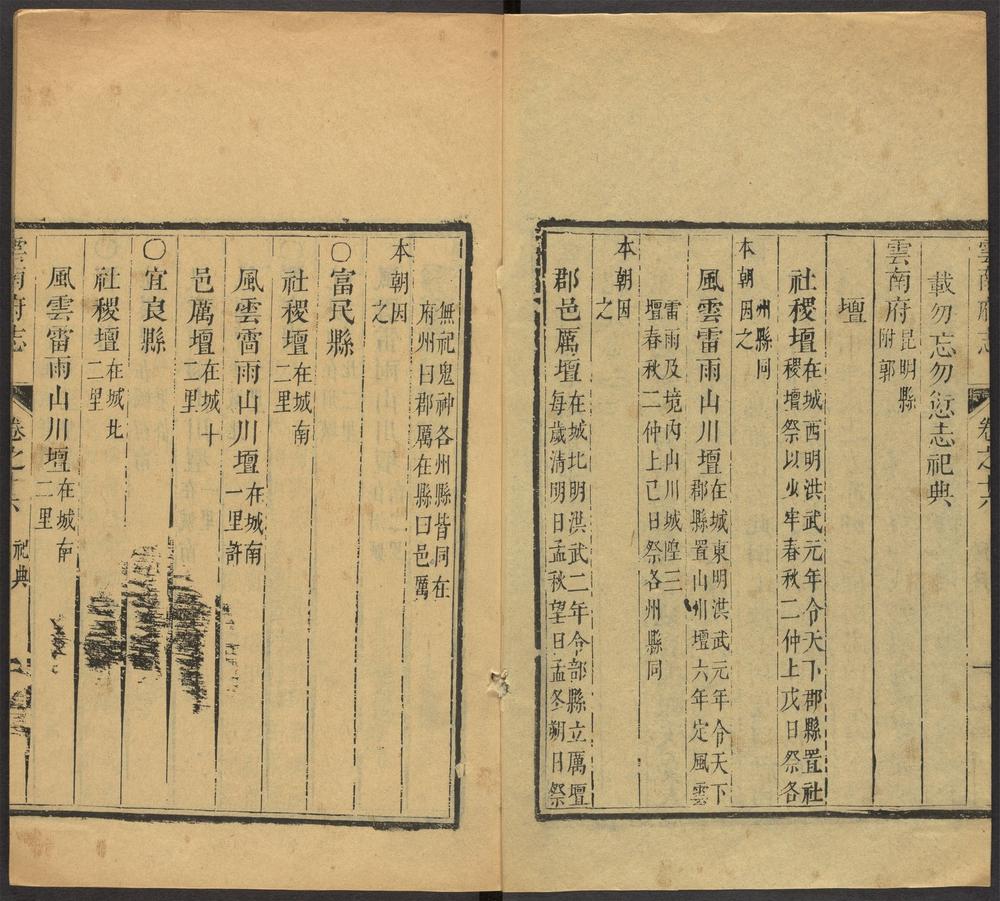 雲南府志
卷之十六
一
載勿忘勿愆志祀典
雲南府昆明縣附郭
壇
社稷壇在城西明洪武元年令天下郡縣置社
稷壇祭以少牢春秋二仲上戊日祭各
州縣同
本朝因之
風雲雷雨山川壇在城東明洪武元年令天下
郡縣置山川壇六年定風雲
雷雨及境内山川城隍三
壇春秋二仲上己日祭各州縣同
本朝因
之
郡邑厲壇在城北明洪武二年令部縣立厲壇
每歲淸明日孟秋望日孟冬朔日祭
無祀鬼神各州縣皆同在
府州曰郡厲在縣曰邑厲
本朝因
之
〇富民縣
社稷壇在城南
二里
風雲雷雨山川壇在城南
一里許
邑厲壇在城十
二里
〇宜良縣
社稷壇在城北
二里
風雲雷雨山川壇在城南
二里
雲南府志
卷之十六
祀典